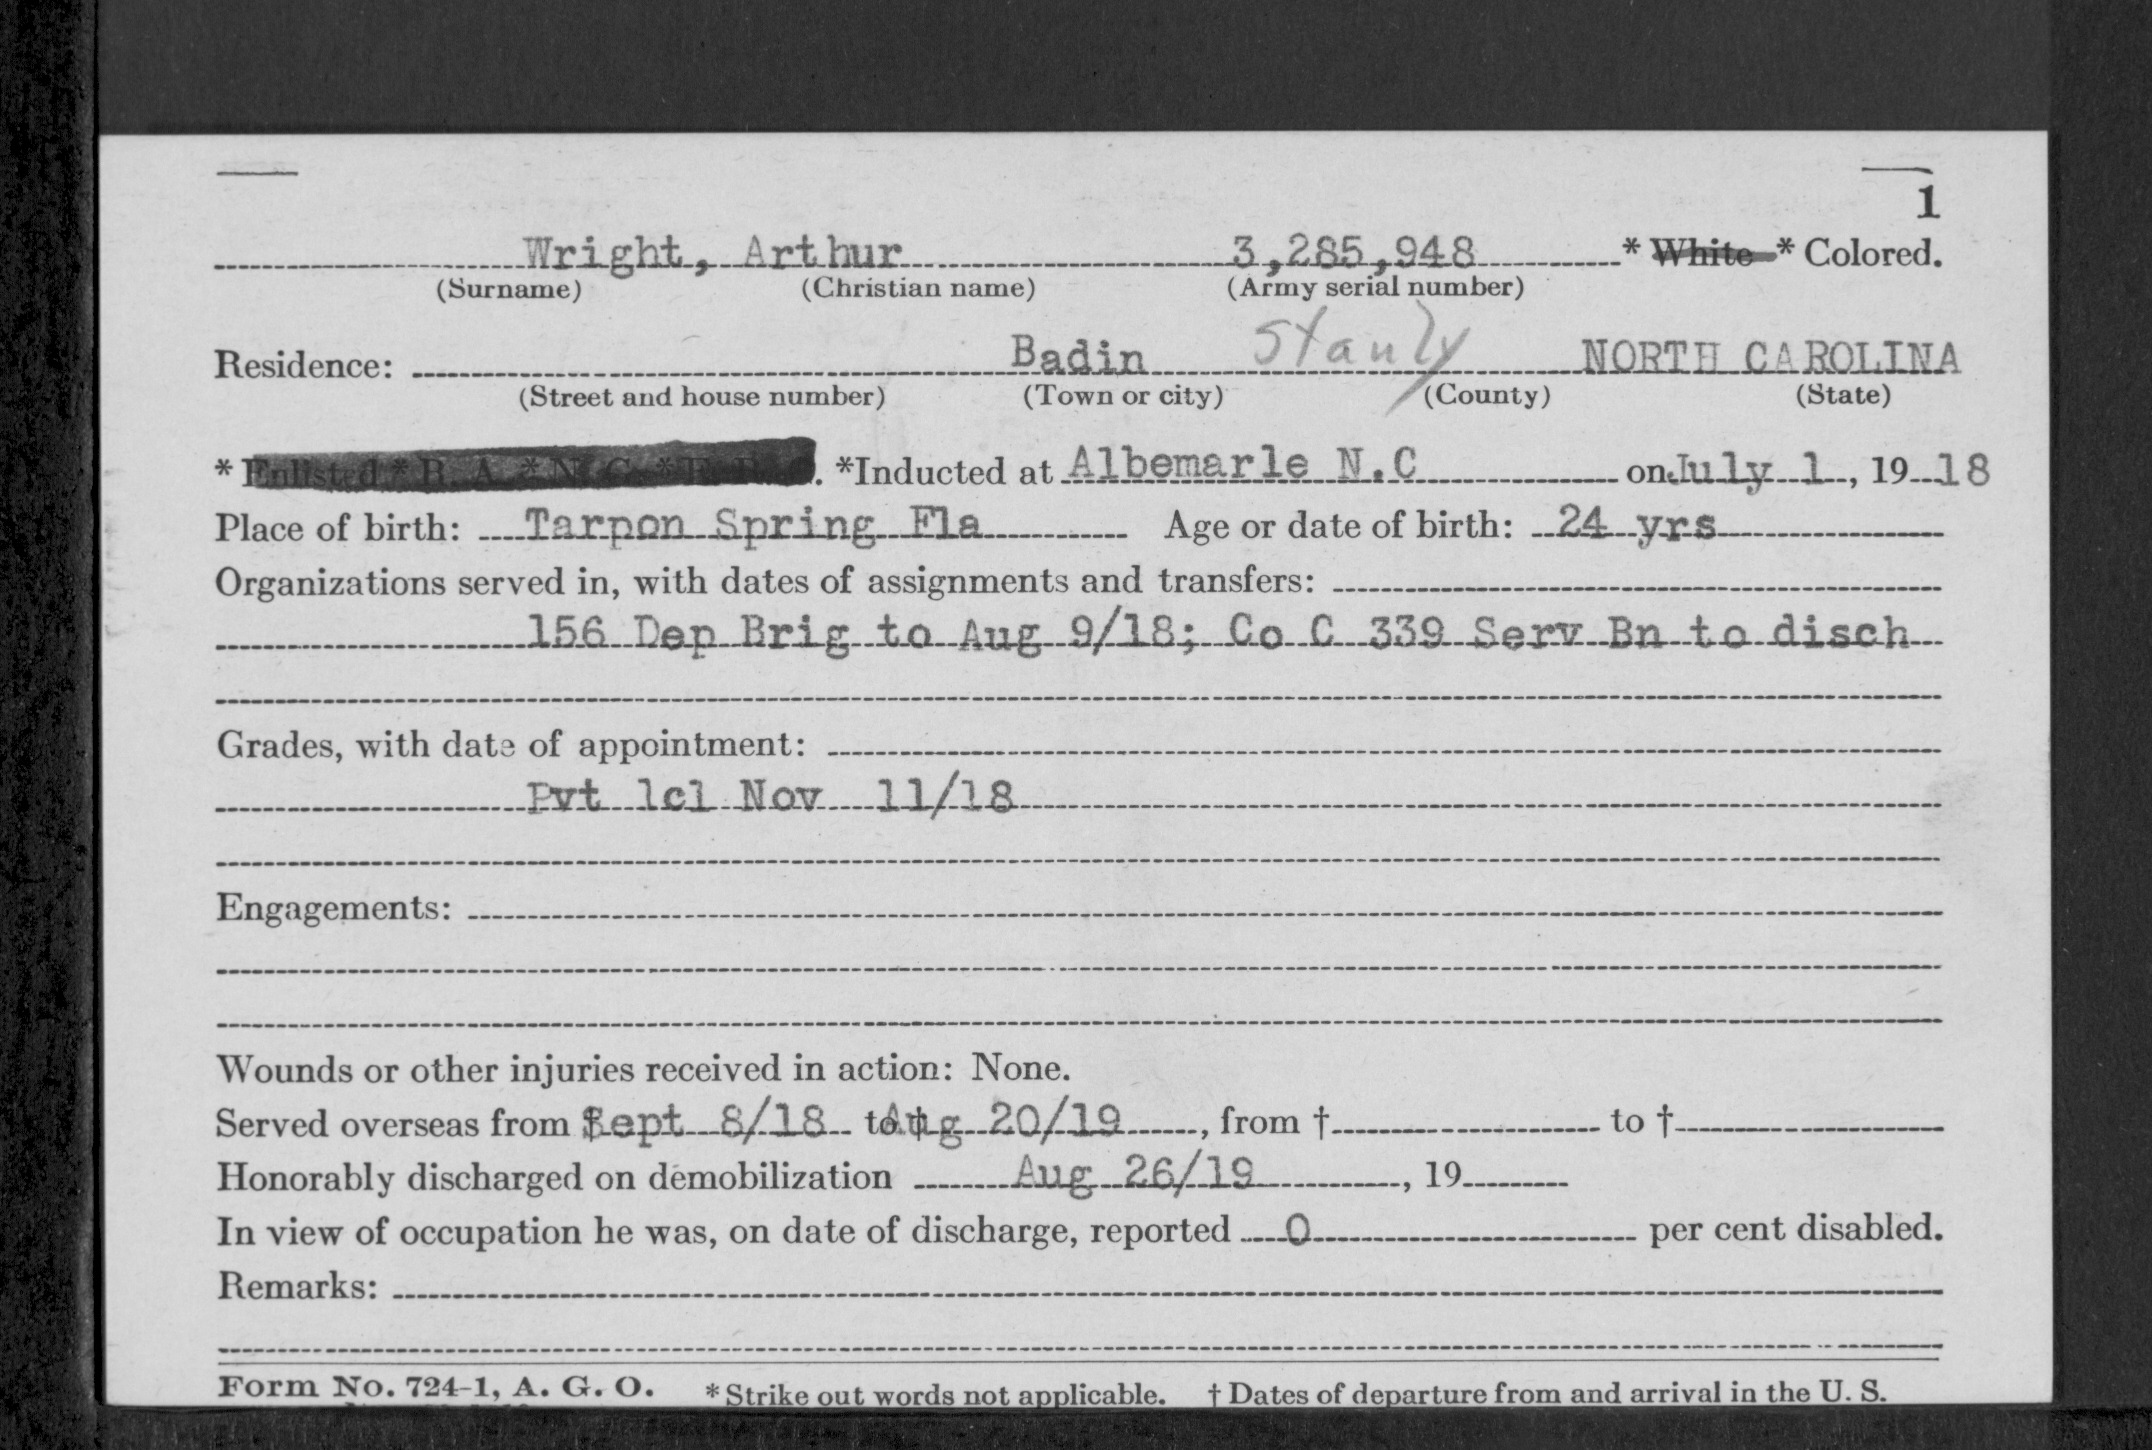 1
Wright, Arthur 3,285,948 * White * Colored.
(Surname) (Christian name) (Army serial number)
Residence: Badin Stanly NORTH CAROLINA
(Street and house number) (Town or city) (County) (State)
* Enlisted * R. A. * N. G. * E. R. C. *Inducted at Albemarle N.C on July 1, 1918
Place of birth: Tarpon Spring Fla Age or date of birth: 24 yrs
Organizations served in, with dates of assignments and transfers:
156 Dep Brig to Aug 9/18; Co C 339 Serv Bn to disch
Grades, with date of appointment:
Pvt 1cl Nov 11/18
Engagements:
Wounds or other injuries received in action: None.
Served overseas from † Sept 8/18 to † Aug 20/19, from † to †
Honorably discharged on demobilization Aug 26/19, 19
In view of occupation he was, on date of discharge, reported 0 per cent disabled.
Remarks:
Form No. 724-1, A. G. O. * Strike out words not applicable. † Dates of departure from and arrival in the U. S.